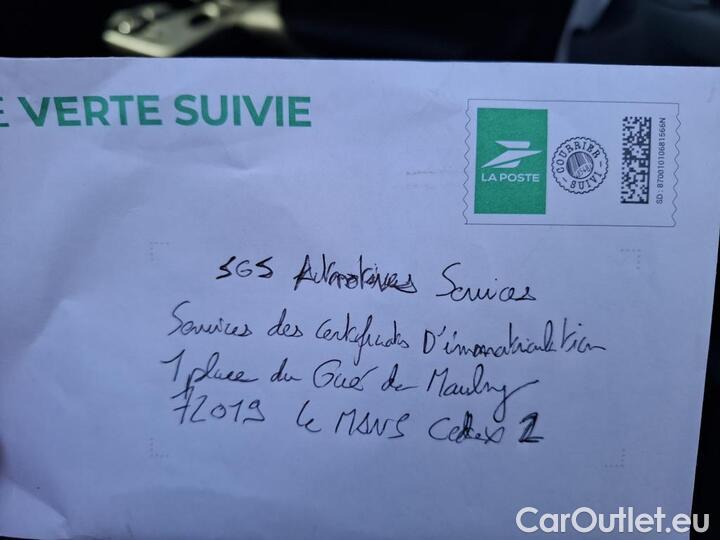 E VERTE SUIVIE
LA POSTE
COURRIER
SUIVI
SD : 87001010681566N
SGS Automotives Services
Services des certificats D'immatriculation
1 place du Gué de Maulny
72019 Le MANS Cedex 2
CarOutlet.eu